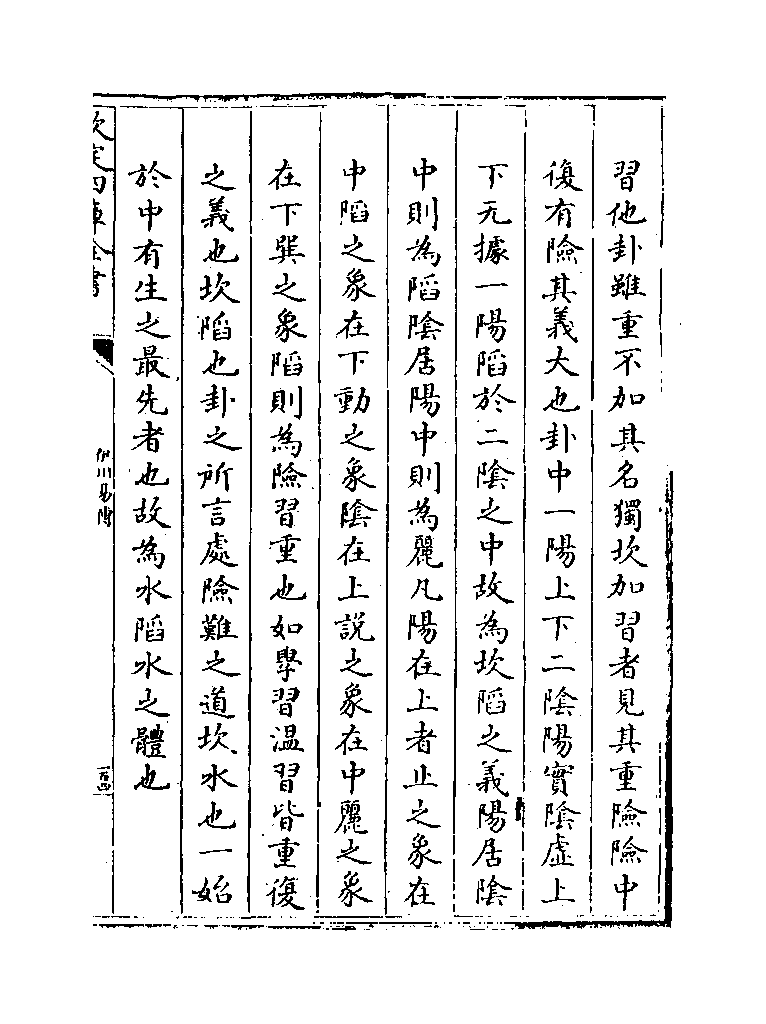 習他卦雖重不加其名獨坎加習者見其重險險中
復有險其義大也卦中一陽上下二陰陽實陰虛上
下无據一陽陷於二陰之中故為坎陷之義陽居陰
中則為陷陰居陽中則為麗凡陽在上者止之象在
中陷之象在下動之象陰在上說之象在中麗之象
在下巽之象陷則為險習重也如學習溫習皆重復
之義也坎陷也卦之所言處險難之道坎水也一始
於中有生之最先者也故為水陷水之體也
欽定四庫全書
伊川易傳
一百四